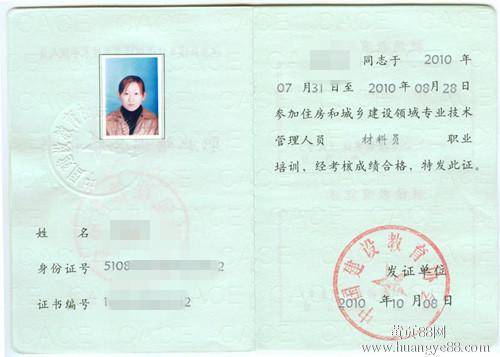 姓 名
身份证号 5108 2
证书编号 1 2
同志于 2010 年
07 月 31 日至 2010 年 08 月 28 日
参加住房和城乡建设领域专业技术
管理人员 材料员 职业
培训，经考核成绩合格，特发此证。
中国建设教育协会
发证单位
2010 年 10 月 08 日
黄页88网
www.huangye88.com